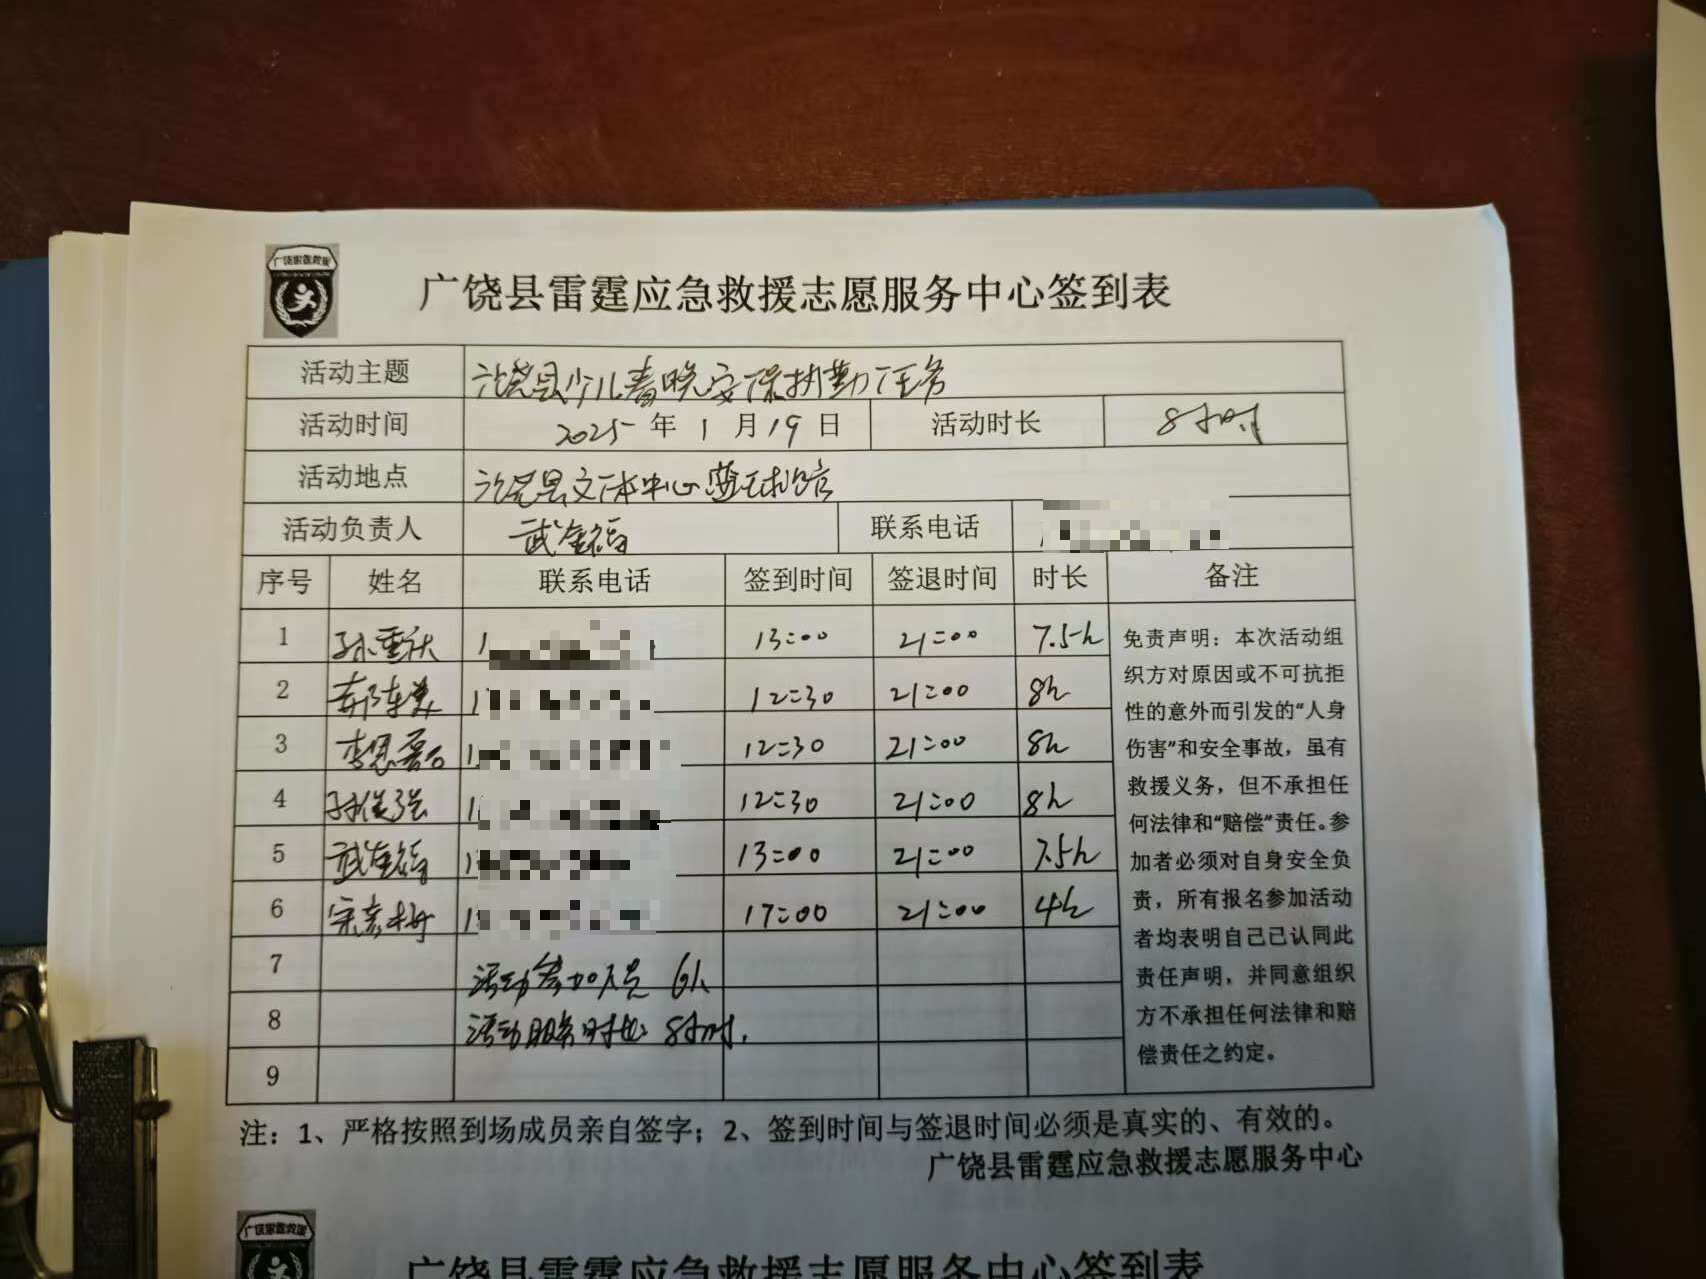 广饶雷霆救援
广饶县雷霆应急救援志愿服务中心签到表
活动主题 广饶县少儿春晚安保执勤任务
活动时间 2025年1月19日 活动时长 8小时
活动地点 广饶县文体中心篮球馆
活动负责人 武金福 联系电话
序号 姓名 联系电话 签到时间 签退时间 时长 备注
1 孙重庆 1 13:00 21:00 7.5h
2 1 12:30 21:00 8h
3 李恩磊 1 12:30 21:00 8h
4 孙俊强 1 12:30 21:00 8h
5 武金福 1 13:00 21:00 7.5h
6 宋彦梅 1 17:00 21:00 4h
7 活动参加人员 6人
8 活动服务时长 8小时.
9
免责声明：本次活动组
织方对原因或不可抗拒
性的意外而引发的“人身
伤害”和安全事故，虽有
救援义务，但不承担任
何法律和“赔偿”责任。参
加者必须对自身安全负
责，所有报名参加活动
者均表明自己已认同此
责任声明，并同意组织
方不承担任何法律和赔
偿责任之约定。
注：1、严格按照到场成员亲自签字；2、签到时间与签退时间必须是真实的、有效的。
广饶县雷霆应急救援志愿服务中心
广饶雷霆救援
广饶县雷霆应急救援志愿服务中心签到表